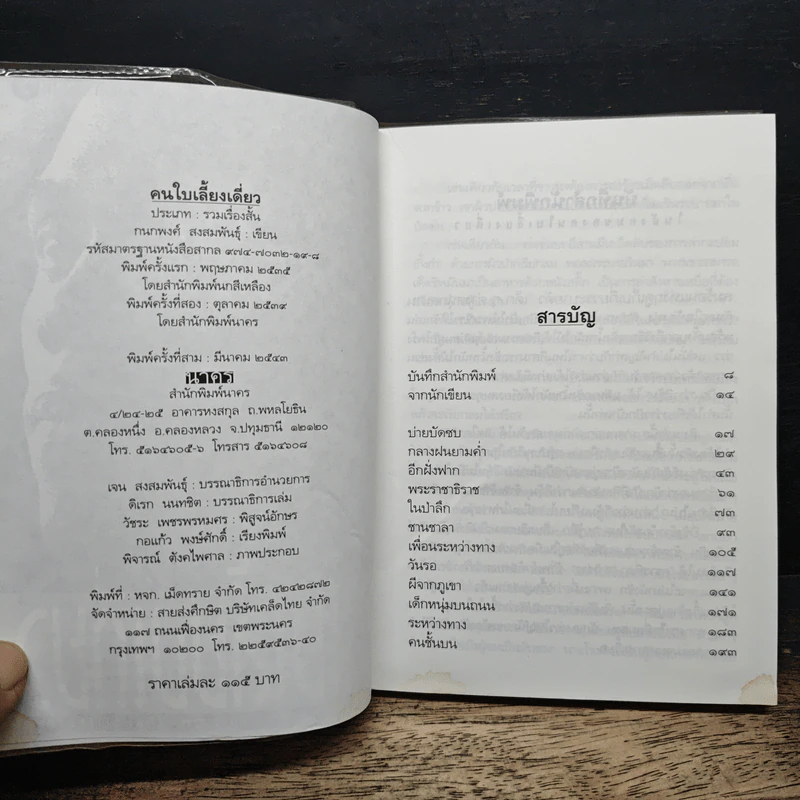 คนใบเลี้ยงเดี่ยว
ประเภท : รวมเรื่องสั้น
กนกพงศ์ สงสมพันธุ์ : เขียน
รหัสมาตรฐานหนังสือสากล ๙๗๔-๗๐๓๒-๑๙-๘
พิมพ์ครั้งแรก : พฤษภาคม ๒๕๓๕
โดยสำนักพิมพ์นกสีเหลือง
พิมพ์ครั้งที่สอง : ตุลาคม ๒๕๓๙
โดยสำนักพิมพ์นาคร
พิมพ์ครั้งที่สาม : มีนาคม ๒๕๔๓
นาคร
สำนักพิมพ์นาคร
๔/๒๔-๒๕ อาคารหงสกุล ถ.พหลโยธิน
ต.คลองหนึ่ง อ.คลองหลวง จ.ปทุมธานี ๑๒๑๒๐
โทร. ๕๑๖๔๖๐๕-๖ โทรสาร ๕๑๖๔๖๐๘
เจน สงสมพันธุ์ : บรรณาธิการอำนวยการ
ดิเรก นนทชิต : บรรณาธิการเล่ม
วัชระ เพชรพรหมศร : พิสูจน์อักษร
กอแก้ว พงษ์ศักดิ์ : เรียงพิมพ์
พิจารณ์ ตังคไพศาล : ภาพประกอบ
พิมพ์ที่ : หจก. เม็ดทราย จำกัด โทร. ๔๒๔๒๘๗๒
จัดจำหน่าย : สายส่งศึกษิต บริษัทเคล็ดไทย จำกัด
๑๑๗ ถนนเฟื่องนคร เขตพระนคร
กรุงเทพฯ ๑๐๒๐๐ โทร. ๒๒๕๙๕๓๖-๔๐
ราคาเล่มละ ๑๑๕ บาท
สารบัญ
บันทึกสำนักพิมพ์ ๘
จากนักเขียน ๑๔
บ่ายบัดซบ ๑๗
กลางฝนยามค่ำ ๒๙
อีกฝั่งฟาก ๔๓
พระราชาธิราช ๖๑
ในป่าลึก ๗๓
ชานชาลา ๙๓
เพื่อนระหว่างทาง ๑๐๕
วันรอ ๑๑๗
ผีจากภูเขา ๑๔๑
เด็กหนุ่มบนถนน ๑๗๑
ระหว่างทาง ๑๘๓
คนชั้นบน ๑๙๓